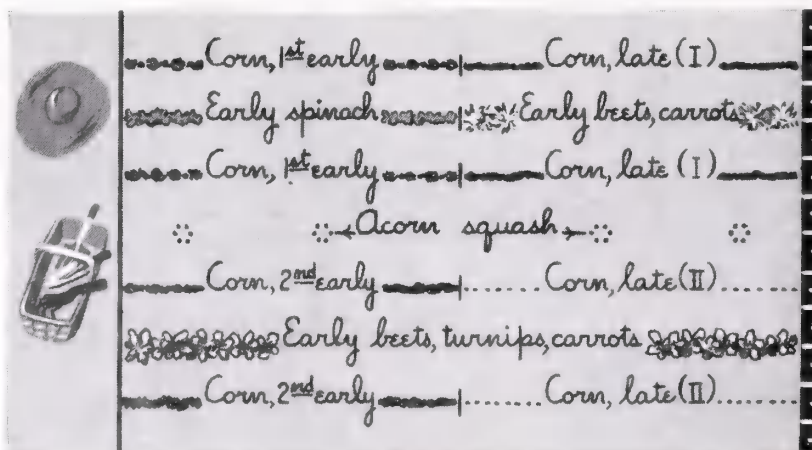 Corn, 1st early Corn, late (I)
Early spinach Early beets, carrots
Corn, 1st early Corn, late (I)
Acorn squash
Corn, 2nd early Corn, late (II)
Early beets, turnips, carrots
Corn, 2nd early Corn, late (II)